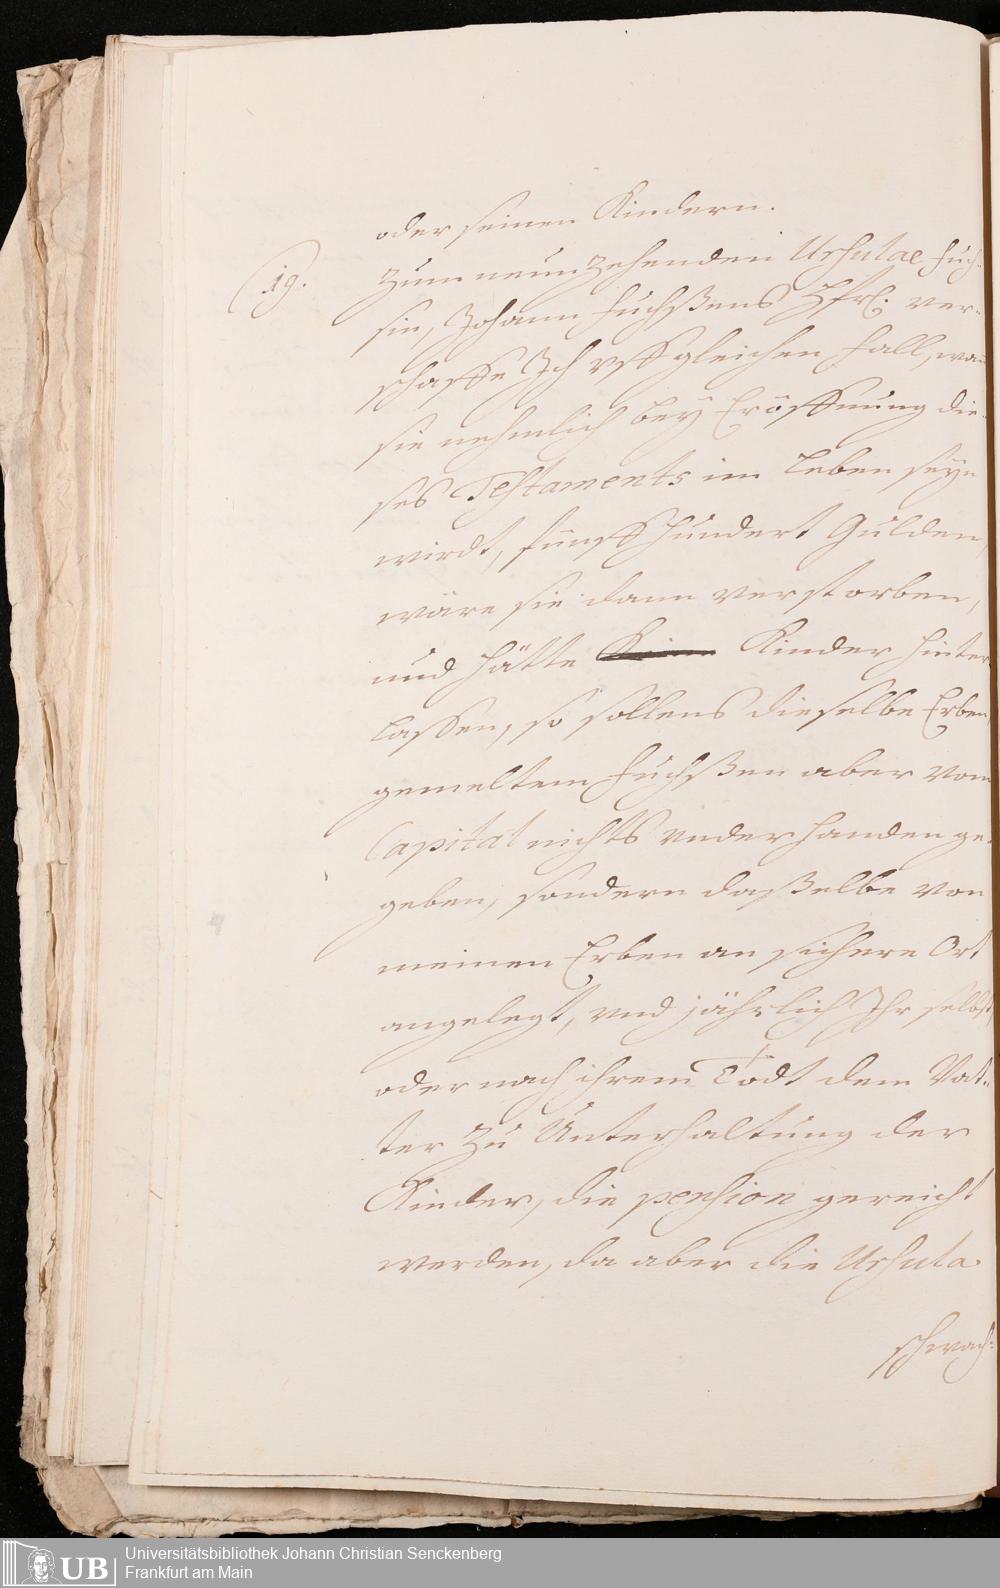 oder seinen Kindern.
19. Zum neunzehenden Ursulae Fuch-
sin, Johann Fuchßens Hfr. ver-
schaffe Ich vff gleichen Fall, wañ
sie nehmlich bey Eröffnung die-
ses Testaments im Leben seyn
wirdt, fünff Hundert Gulden,
wäre sie dann verstorben,
und hätte Kinder hinter-
lassen, so sollens dieselbe Erben,
gemeltem Fuchßen aber vom
Capital nichts vnderhanden ge-
geben, sondern daßelbe von
meinen Erben an sichere Ort
angelegt, vnd jährlich Ihr selbst,
oder nach ihrem Todt dem Vat-
ter zu Unterhaltung der
Kinder, die pension gereicht
werden, da aber die Ursula
schwach-
Universitätsbibliothek Johann Christian Senckenberg
UB Frankfurt am Main